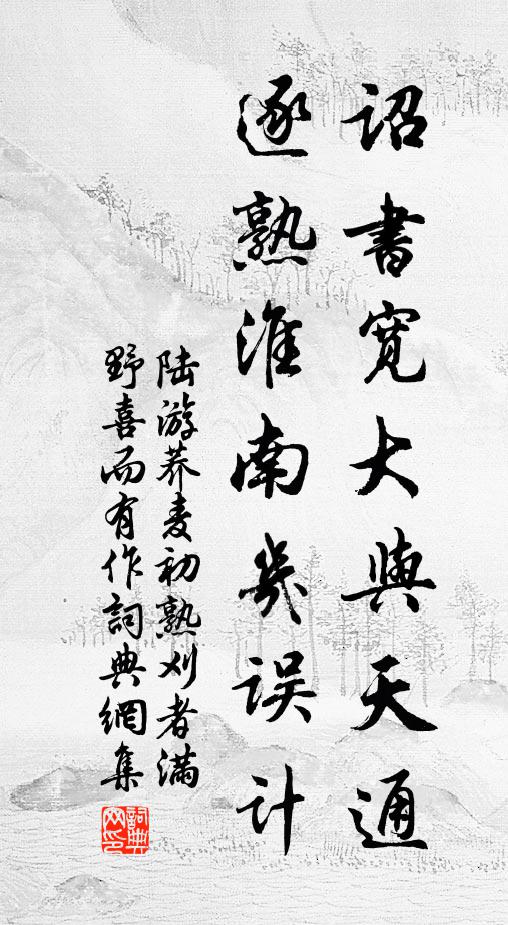 诏书宽大与天通
逐熟淮南几误计
陆游荞麦初熟刈者满
野喜而有作詞典網集
詞典网印